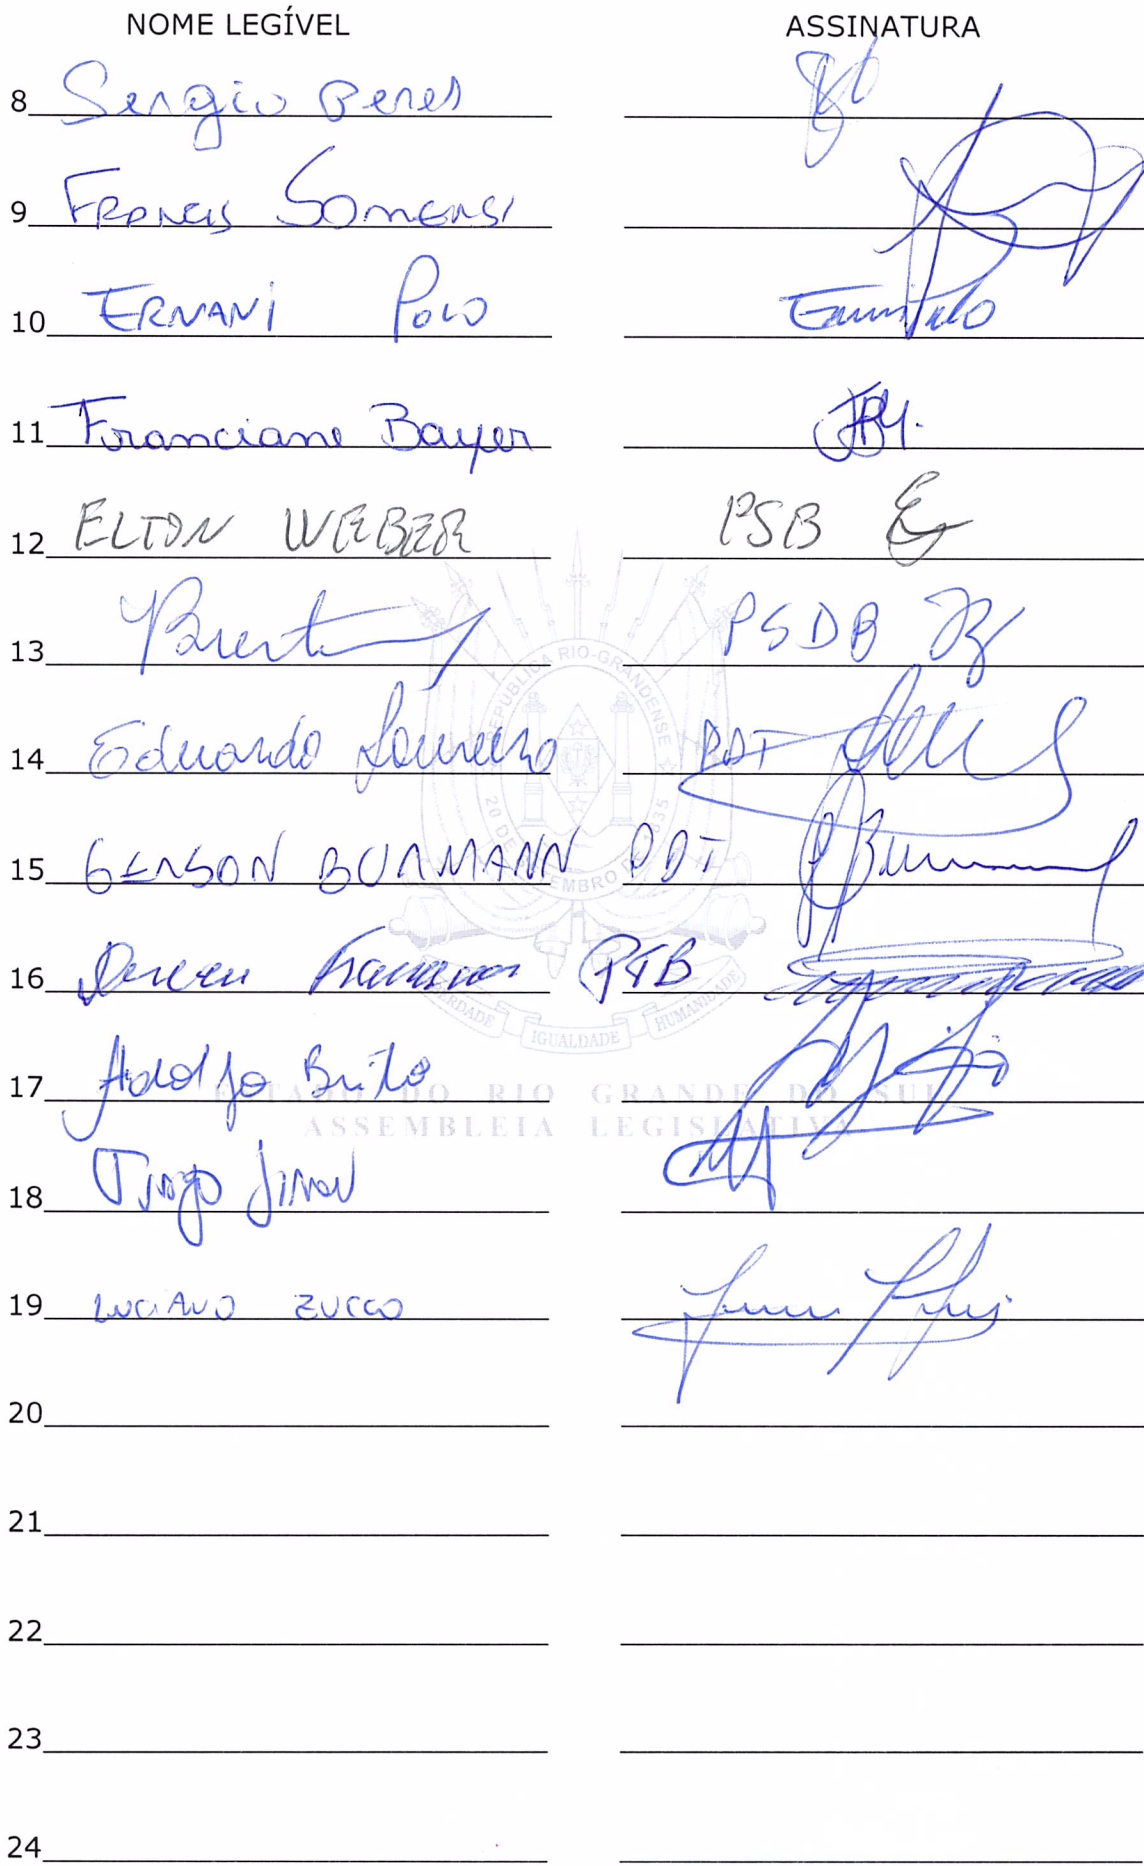 NOME LEGÍVEL ASSINATURA
8 Sergio Peres
9 FRANCIS SOMENSI
10 ERNANI POLO Ernani Polo
11 Franciane Bayer FBY.
12 ELTON WEBER PSB
13 PSDB
14 Eduardo Loureiro PDT
15 GERSON BURMANN PDT
16 Dirceu PTB
17 Adolfo Brito
18 Tiago Simon
19 LUCIANO ZUCCO
20
21
22
23
24
REPÚBLICA RIO-GRANDENSE
20 DE SETEMBRO DE 1835
LIBERDADE IGUALDADE HUMANIDADE
ESTADO DO RIO GRANDE DO SUL
ASSEMBLEIA LEGISLATIVA